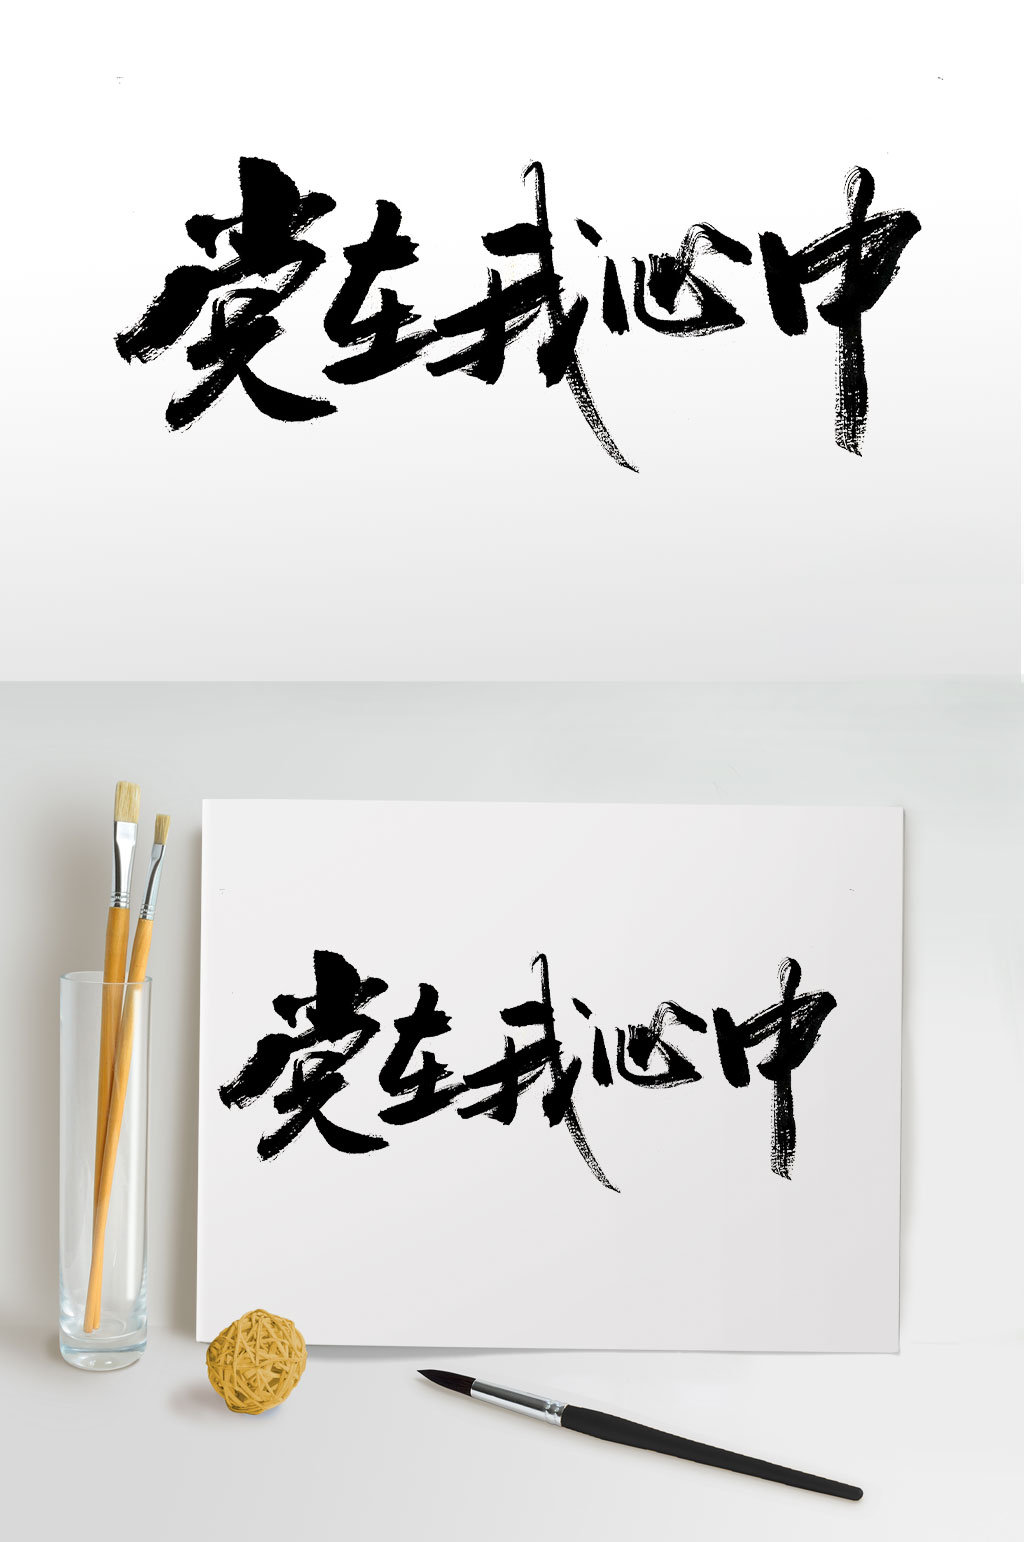 党在我心中
党在我心中